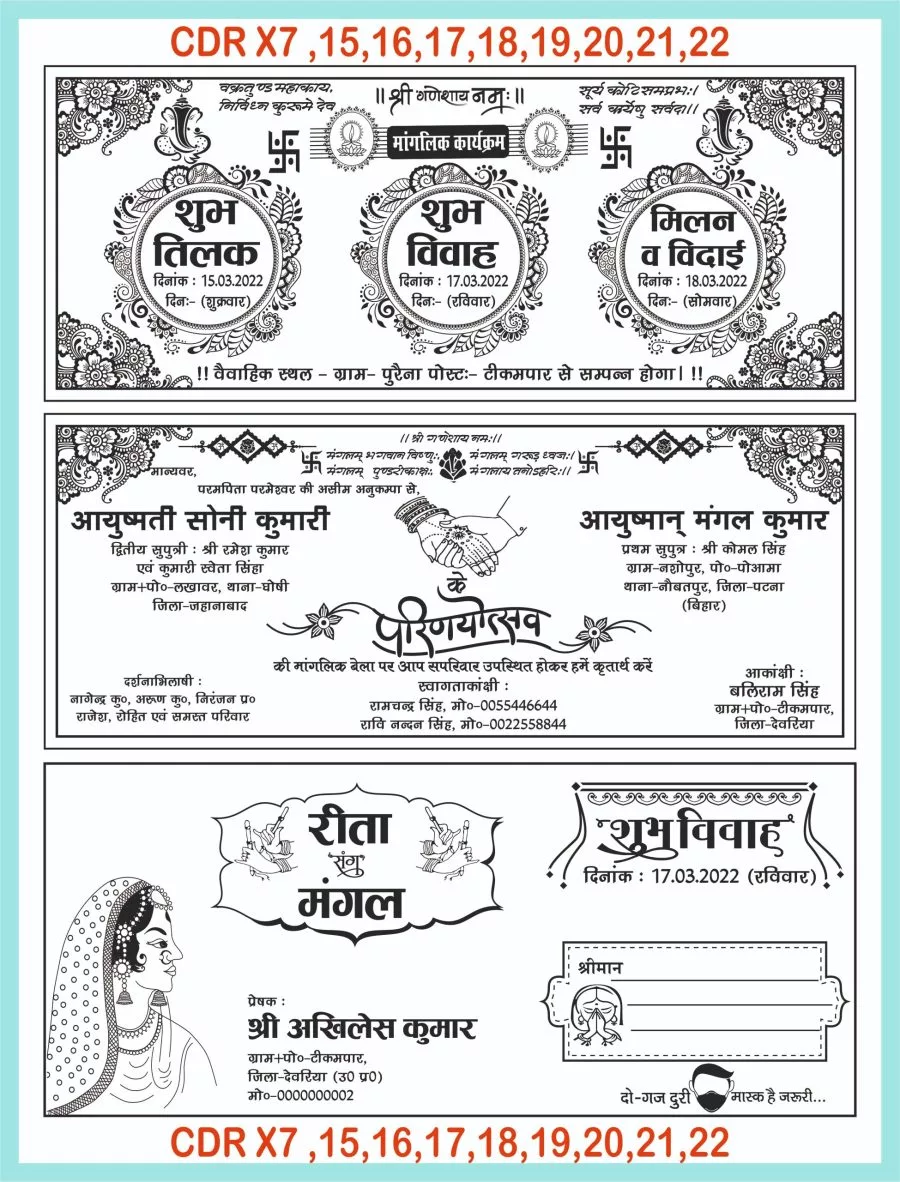 CDR X7 ,15,16,17,18,19,20,21,22
वक्रतुण्ड महाकाय,
निर्विघ्न कुरूमे देव
॥ श्री गणेशाय नमः ॥
सूर्य कोटि समप्रभः।
सर्व कार्येषु सर्वदा।।
मांगलिक कार्यक्रम
शुभ
तिलक
दिनांक : 15.03.2022
दिनः- (शुक्रवार)
शुभ
विवाह
दिनांक : 17.03.2022
दिनः- (रविवार)
मिलन
व विदाई
दिनांक : 18.03.2022
दिनः- (सोमवार)
!! वैवाहिक स्थल - ग्राम- पुरैना पोस्टः- टीकमपार से सम्पन्न होगा। !!
।। श्री गणेशाय नमः।।
मंगलम् भगवान विष्णुः, मंगलम् गरूड़ ध्वजः।
मंगलम् पुण्डरीकाक्षः, मंगलाय तनोऽहरिः।।
मान्यवर,
परमपिता परमेश्वर की असीम अनुकम्पा से,
आयुष्मती सोनी कुमारी
द्वितीय सुपुत्री : श्री रमेश कुमार
एवं कुमारी स्वेता सिंहा
ग्राम+पो०-लखावर, थाना-घोषी
जिला-जहानाबाद
आयुष्मान् मंगल कुमार
प्रथम सुपुत्र : श्री कोमल सिंह
ग्राम-नशोपुर, पो०-पोआमा
थाना-नौबतपुर, जिला-पटना
(बिहार)
के
परिणयोत्सव
की मांगलिक बेला पर आप सपरिवार उपस्थित होकर हमें कृतार्थ करें
दर्शनाभिलाषी :
नागेन्द्र कु०, अरूण कु०, निरंजन प्र०
राजेश, रोहित एवं समस्त परिवार
स्वागताकांक्षी :
रामचन्द्र सिंह, मो०-0055446644
रावि नन्दन सिंह, मो०-0022558844
आकांक्षी :
बलिराम सिंह
ग्राम+पो०-टीकमपार,
जिला-देवरिया
रीता
संग
मंगल
शुभ विवाह
दिनांक : 17.03.2022 (रविवार)
श्रीमान
प्रेषक :
श्री अखिलेस कुमार
ग्राम+पो०-टीकमपार,
जिला-देवरिया (उ0 प्र0)
मो०-0000000002
दो-गज दुरी मास्क है जरूरी...
CDR X7 ,15,16,17,18,19,20,21,22